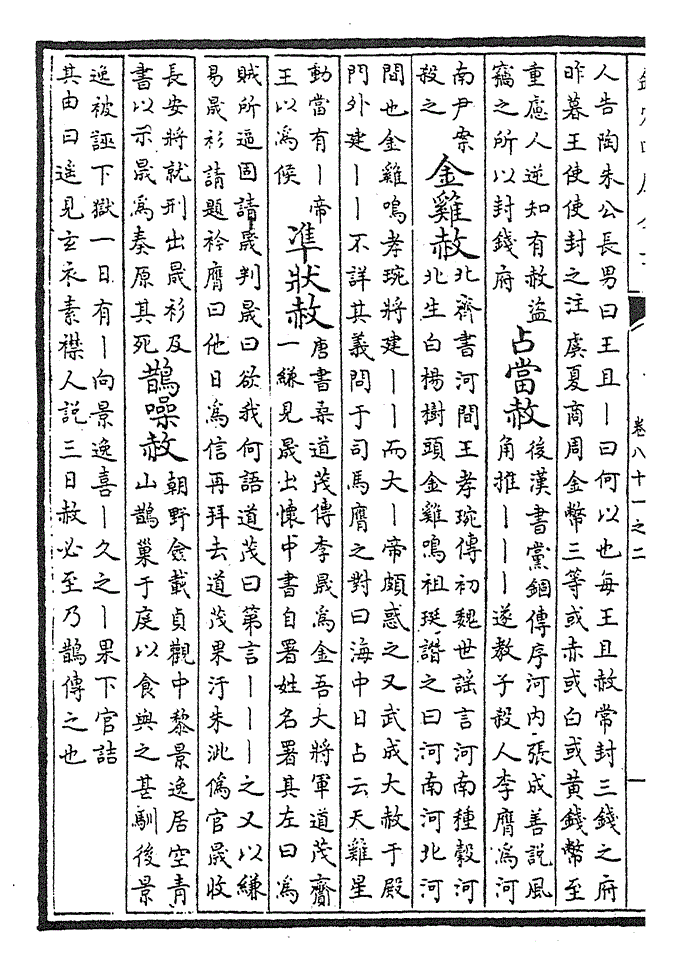 卷八十一之二
人告陶朱公長男曰王且丨曰何以也每王且赦常封三錢之府
昨暮王使使封之注虞夏商周金幣三等或赤或白或黃錢幣至
重慮人逆知有赦盜
竊之所以封錢府
占當赦
後漢書黨錮傳序河内張成善說風
角推丨丨丨遂教子殺人李膺為河
南尹案
殺之
金雞赦
北齊書河間王孝琬傳初魏世謡言河南種穀河
北生白楊樹頭金雞鳴祖珽譖之曰河南河北河
間也金雞鳴孝琬將建丨丨而大丨帝頗惑之又武成大赦于殿
門外建丨丨不詳其義問于司馬膺之對曰海中日占云天雞星
動當有丨帝
王以為候
準狀赦
唐書桑道茂傳李晟為金吾大將軍道茂齎
一縑見晟出懷中書自署姓名署其左曰為
賊所逼固請晟判晟曰欲我何語道茂曰第言丨丨丨之又以縑
易晟衫請題衿膺曰他日為信再拜去道茂果汙朱泚偽官晟收
長安將就刑出晟衫及
書以示晟為奏原其死
鵲噪赦
朝野僉載貞觀中黎景逸居空青
山鵲巢于庭以食與之甚馴後景
逸被誣下獄一日有丨向景逸喜丨久之丨果下官詰
其由曰遥見玄衣素襟人說三日赦必至乃鵲傳之也